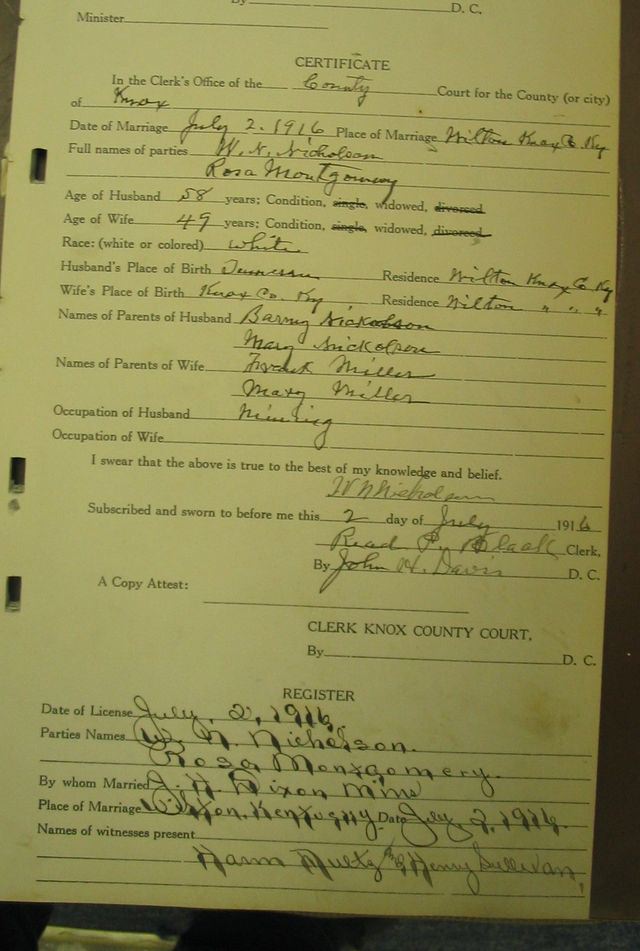 By D. C.
Minister
CERTIFICATE
In the Clerk's Office of the County Court for the County (or city)
of Knox
Date of Marriage July 2. 1916 Place of Marriage Wilton Knox Co. Ky
Full names of parties W. N. Nicholson
Rosa Montgomery
Age of Husband 58 years; Condition, single, widowed, divorced
Age of Wife 49 years; Condition, single, widowed, divorced
Race: (white or colored) White
Husband's Place of Birth Residence Wilton Knox Co Ky
Wife's Place of Birth Knox Co. Ky Residence Wilton " " "
Names of Parents of Husband Barny Nickolson
Mary Nickolson
Names of Parents of Wife Frank Miller
Mary Miller
Occupation of Husband Mining
Occupation of Wife
I swear that the above is true to the best of my knowledge and belief.
W N Nicholson
Subscribed and sworn to before me this 2 day of July 1916
Read P. Black Clerk,
By John H. Davis D. C.
A Copy Attest:
CLERK KNOX COUNTY COURT,
By D. C.
REGISTER
Date of License July, 2, 1916.
Parties Names W. N. Nicholson.
Rosa Montgomery.
By whom Married J. H. Dixon
Place of Marriage Wilton, Kentucky Date July 2, 1916.
Names of witnesses present
Henry Sullivan,